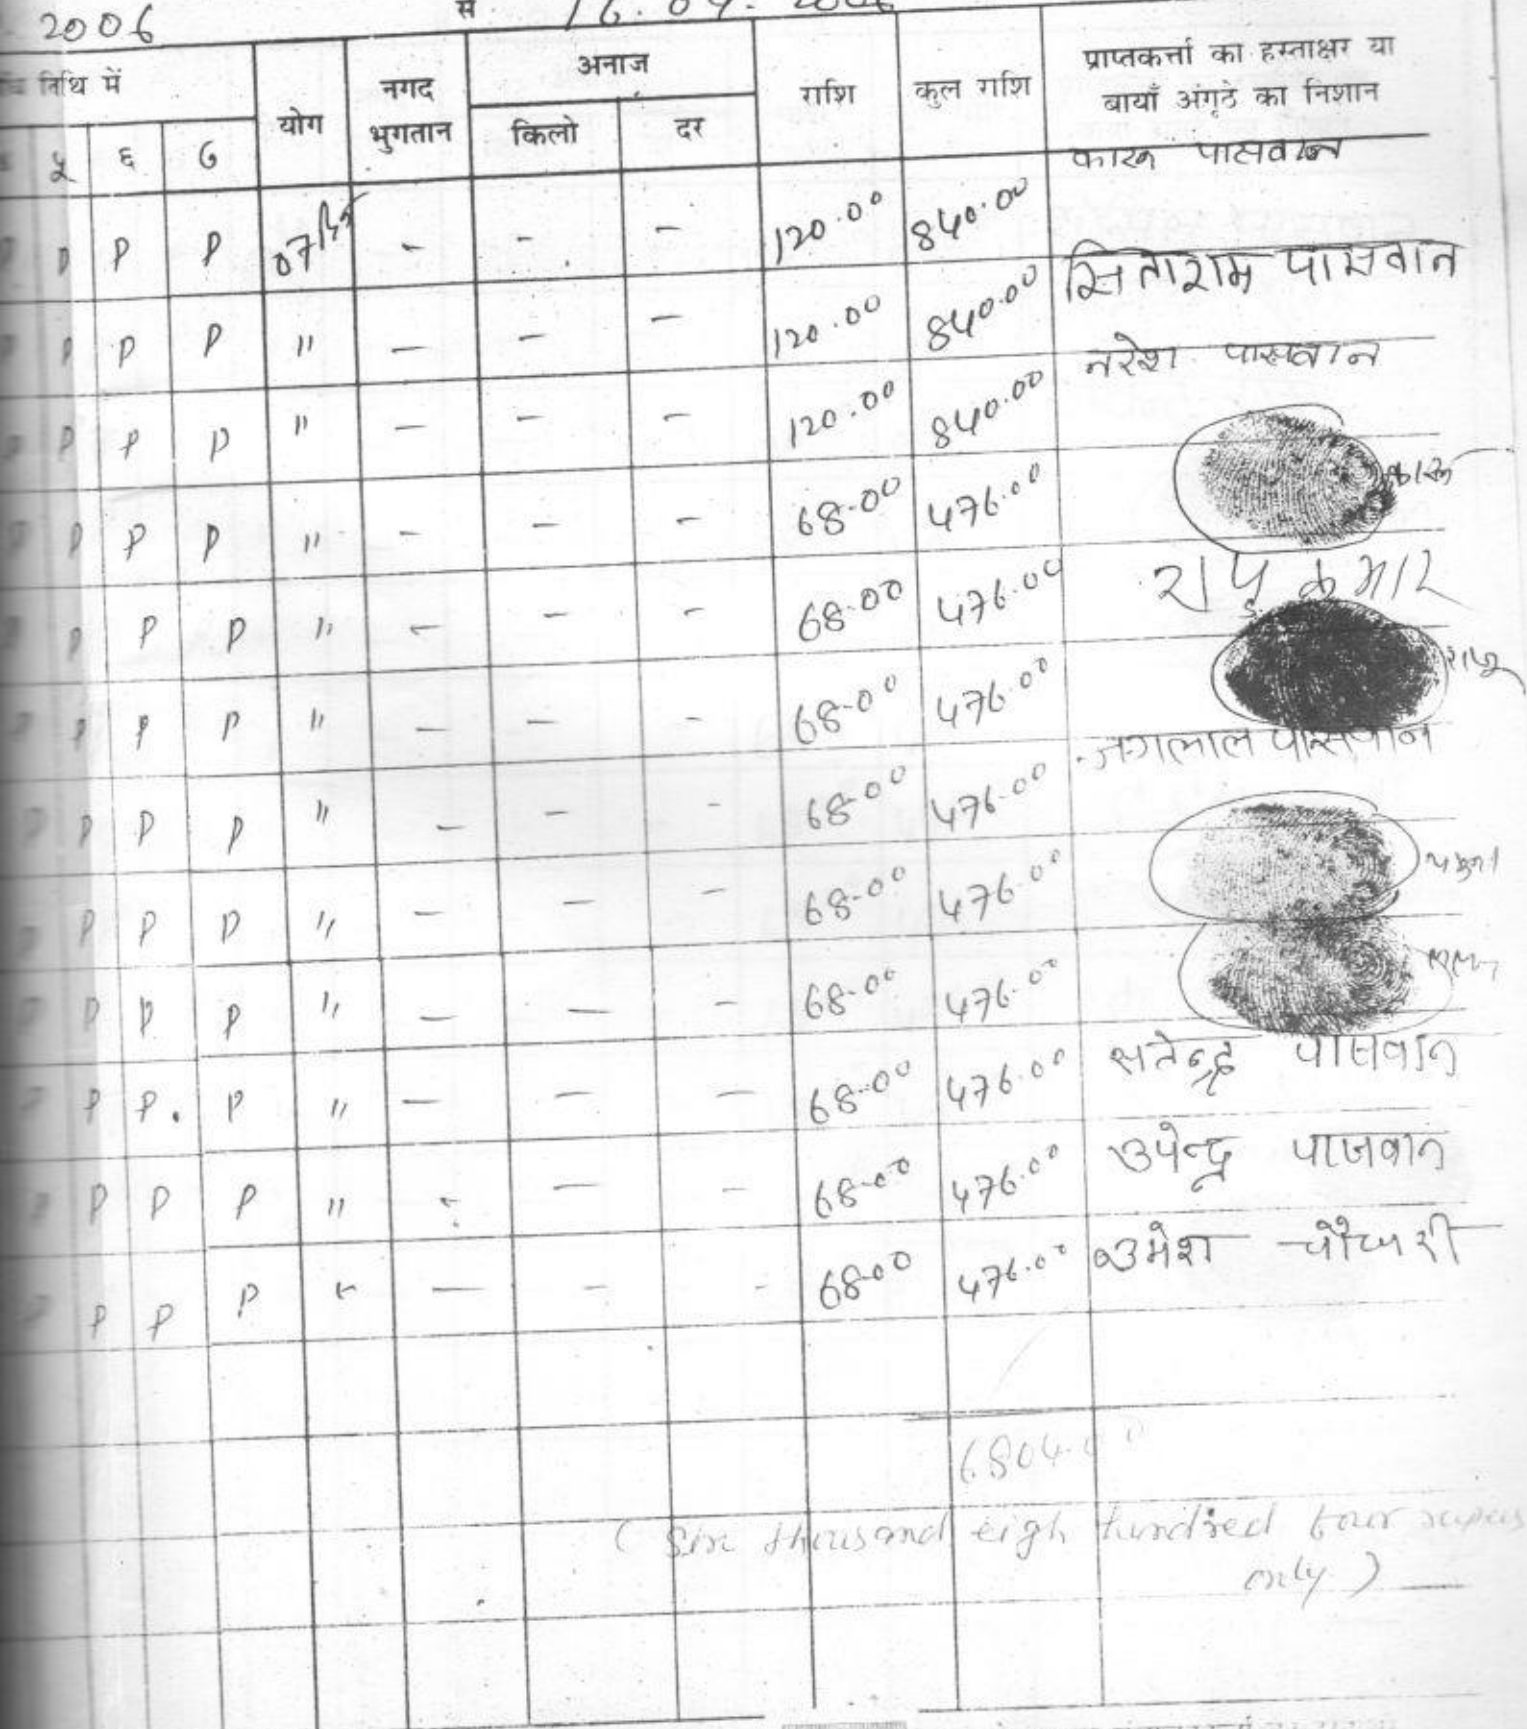 2006 से
तिथि में योग नगद भुगतान अनाज राशि कुल राशि प्राप्तकर्त्ता का हस्ताक्षर या बायाँ अंगूठे का निशान
५ ६ ७ किलो दर
कारू पासवान
P P P 07 - - - 120.00 840.00
सिताराम पासवान
P P P " - - - 120.00 840.00
नरेश पासवान
P P P " - - - 120.00 840.00
P P P " - - - 68.00 476.00 कारू
P P P " - - - 68.00 476.00 राजु कुमार
P P P " - - - 68.00 476.00 राजू
P P P " - - - 68.00 476.00 जगलाल पासवान
P P P " - - - 68.00 476.00
P P P " - - - 68.00 476.00
P P. P " - - - 68.00 476.00 सतेन्द्र पासवान
P P P " - - - 68.00 476.00 उपेन्द्र पासवान
P P P " - - - 68.00 476.00 उमेश चौधरी
6804.00
(Six thousand eigh hundred four rupees
only)